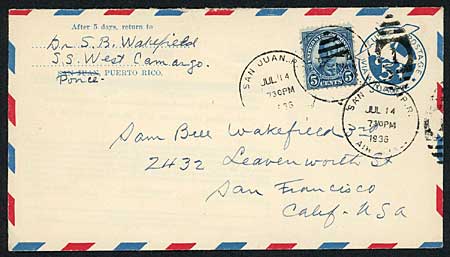 After 5 days, return to
Dr S. B. Wakefield
S.S. West Camargo.
SAN JUAN, PUERTO RICO.
Ponce-
SAN JUAN. P.R.
JUL 14
730PM
1936
5 CENTS 5
SAN JUAN. P.R.
JUL 14
730PM
1936
AIR
Sam Bell Wakefield 3rd
2432 Leavenworth St
San Francisco
Calif - USA